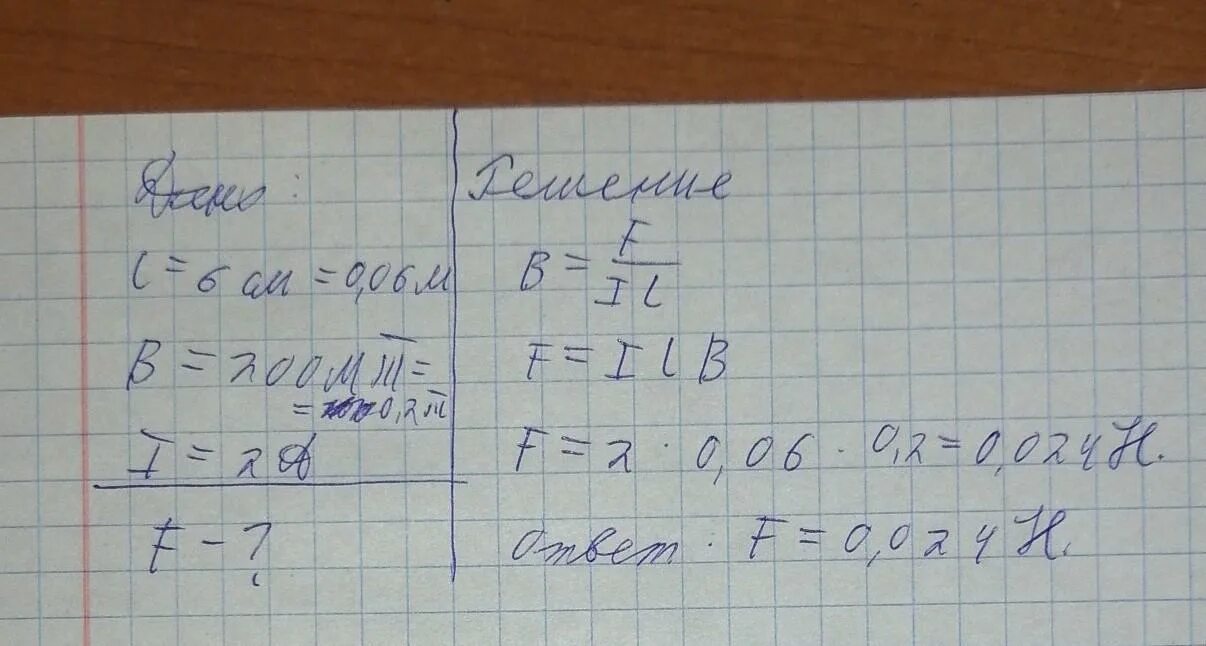 Дано:
l = 6 см = 0,06 м
B = 200 мТл =
= 0,2 Тл
I = 2 А
F - ?
Решение
B = F / I l
F = I l B
F = 2 · 0,06 · 0,2 = 0,024 Н.
Ответ: F = 0,024 Н.